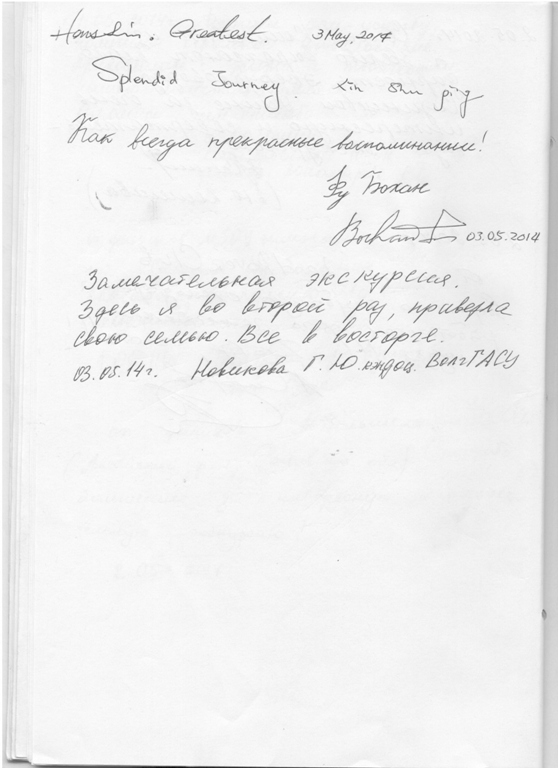 Hans Lin. Greatest. 3 May, 2014
Splendid Journey. Xin Shu ping
Как всегда прекрасные воспоминания!
Фу Бохан
03.05.2014
Замечательная экскурсия.
Здесь я во второй раз, привезла
свою семью. Все в восторге.
03.05.14г. Новикова Г.Ю. ВолгГАСУ